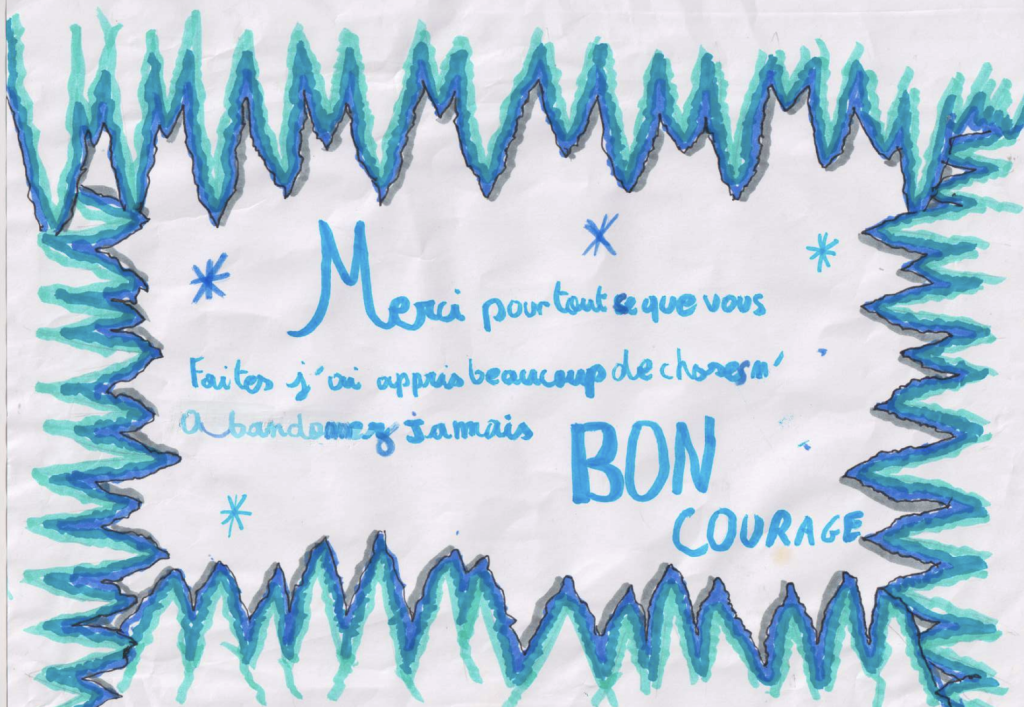 Merci pour tout ce que vous
Faites j'ai appris beaucoup de choses n'
abandonnez jamais
BON
COURAGE